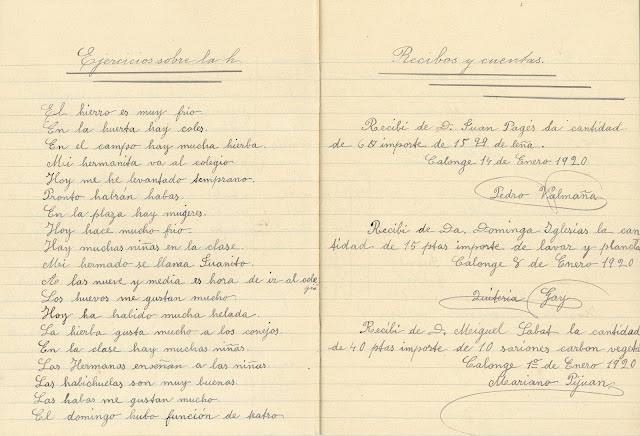 Ejercicios sobre la h.
El hierro es muy frio.
En la huerta hay coles.
En el campo hay mucha hierba.
Mi hermanita va al colegio
Hoy me he levantado temprano.
Pronto habrán habas.
En la plaza hay mugeres.
Hoy hace mucho frio.
Hay muchas niñas en la clase.
Mi hermado se llama Juanito.
A las nueve y media es hora de ir al cole
gio
Los huevos me gustan mucho.
Hoy ha habido mucha helada.
La hierba gusta mucho a los conejos.
En la clase hay muchas niñas.
Las Hermanas enseñan a las niñas.
Las habichuelas son muy buenas.
Las habas me gustan mucho
El domingo hubo función de teatro
Recibos y cuentas.
Recibí de D. Juan Pagés la cantidad
de importe de 15 de leña.
Calonge 14 de Enero 1920
Pedro Valmaña
Recibi de Da. Dominga Iglesias la can
tidad de 15 ptas importe de lavar y plancha
Calonge 8 de Enero 1920
Quiteria Gay
Recibi de D. Meiguel Sabat la cantidad
de 40 ptas importe de 10 sariones carbon vegeta
Calonge 1º de Enero 1920
Mariano Pijuan